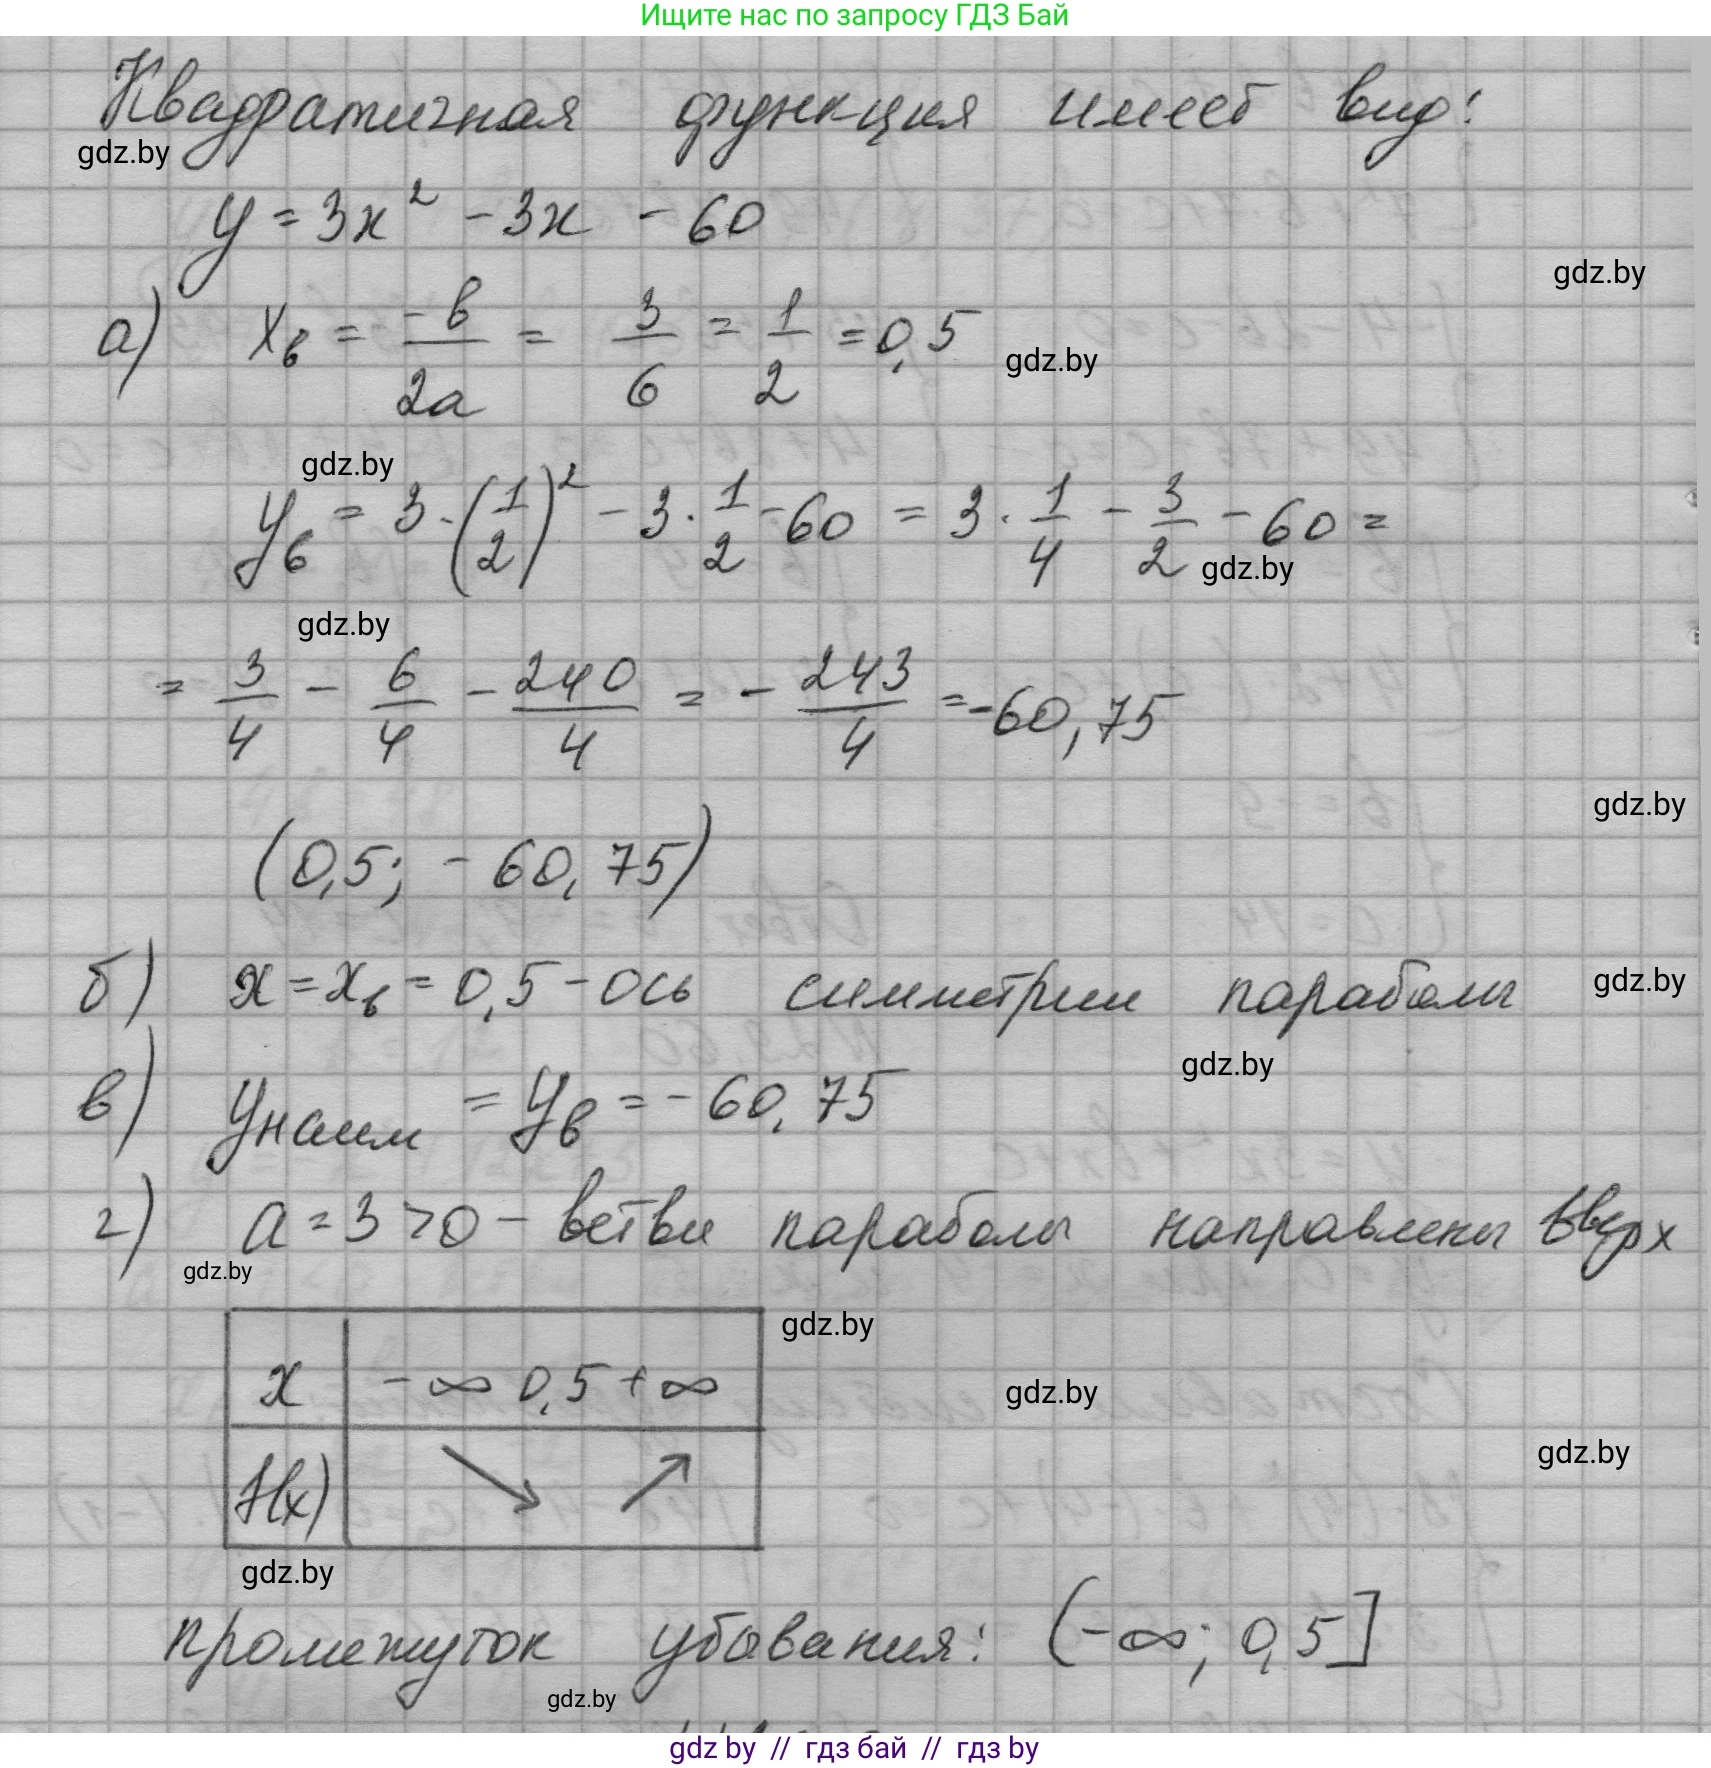 Ищите нас по запросу ГДЗ Бай
Квадратичная функция имеет вид:
gdz.by
y = 3x² - 3x - 60
gdz.by
а) xв = -b/2a = 3/6 = 1/2 = 0,5
gdz.by
gdz.by
yв = 3·(1/2)² - 3·1/2 - 60 = 3·1/4 - 3/2 - 60 =
gdz.by
gdz.by
= 3/4 - 6/4 - 240/4 = - 243/4 = -60,75
gdz.by
(0,5; - 60,75)
б) x = xв = 0,5 - ось симметрии параболы
gdz.by
gdz.by
в) yнаим = yв = - 60,75
г) a = 3 > 0 - ветви параболы направлены вверх
gdz.by
gdz.by
x | -∞ 0,5 +∞
gdz.by
gdz.by
f(x) | ↘ ↗
gdz.by
промежуток убывания: (-∞; 0,5]
gdz.by
gdz by // гдз бай // гдз by